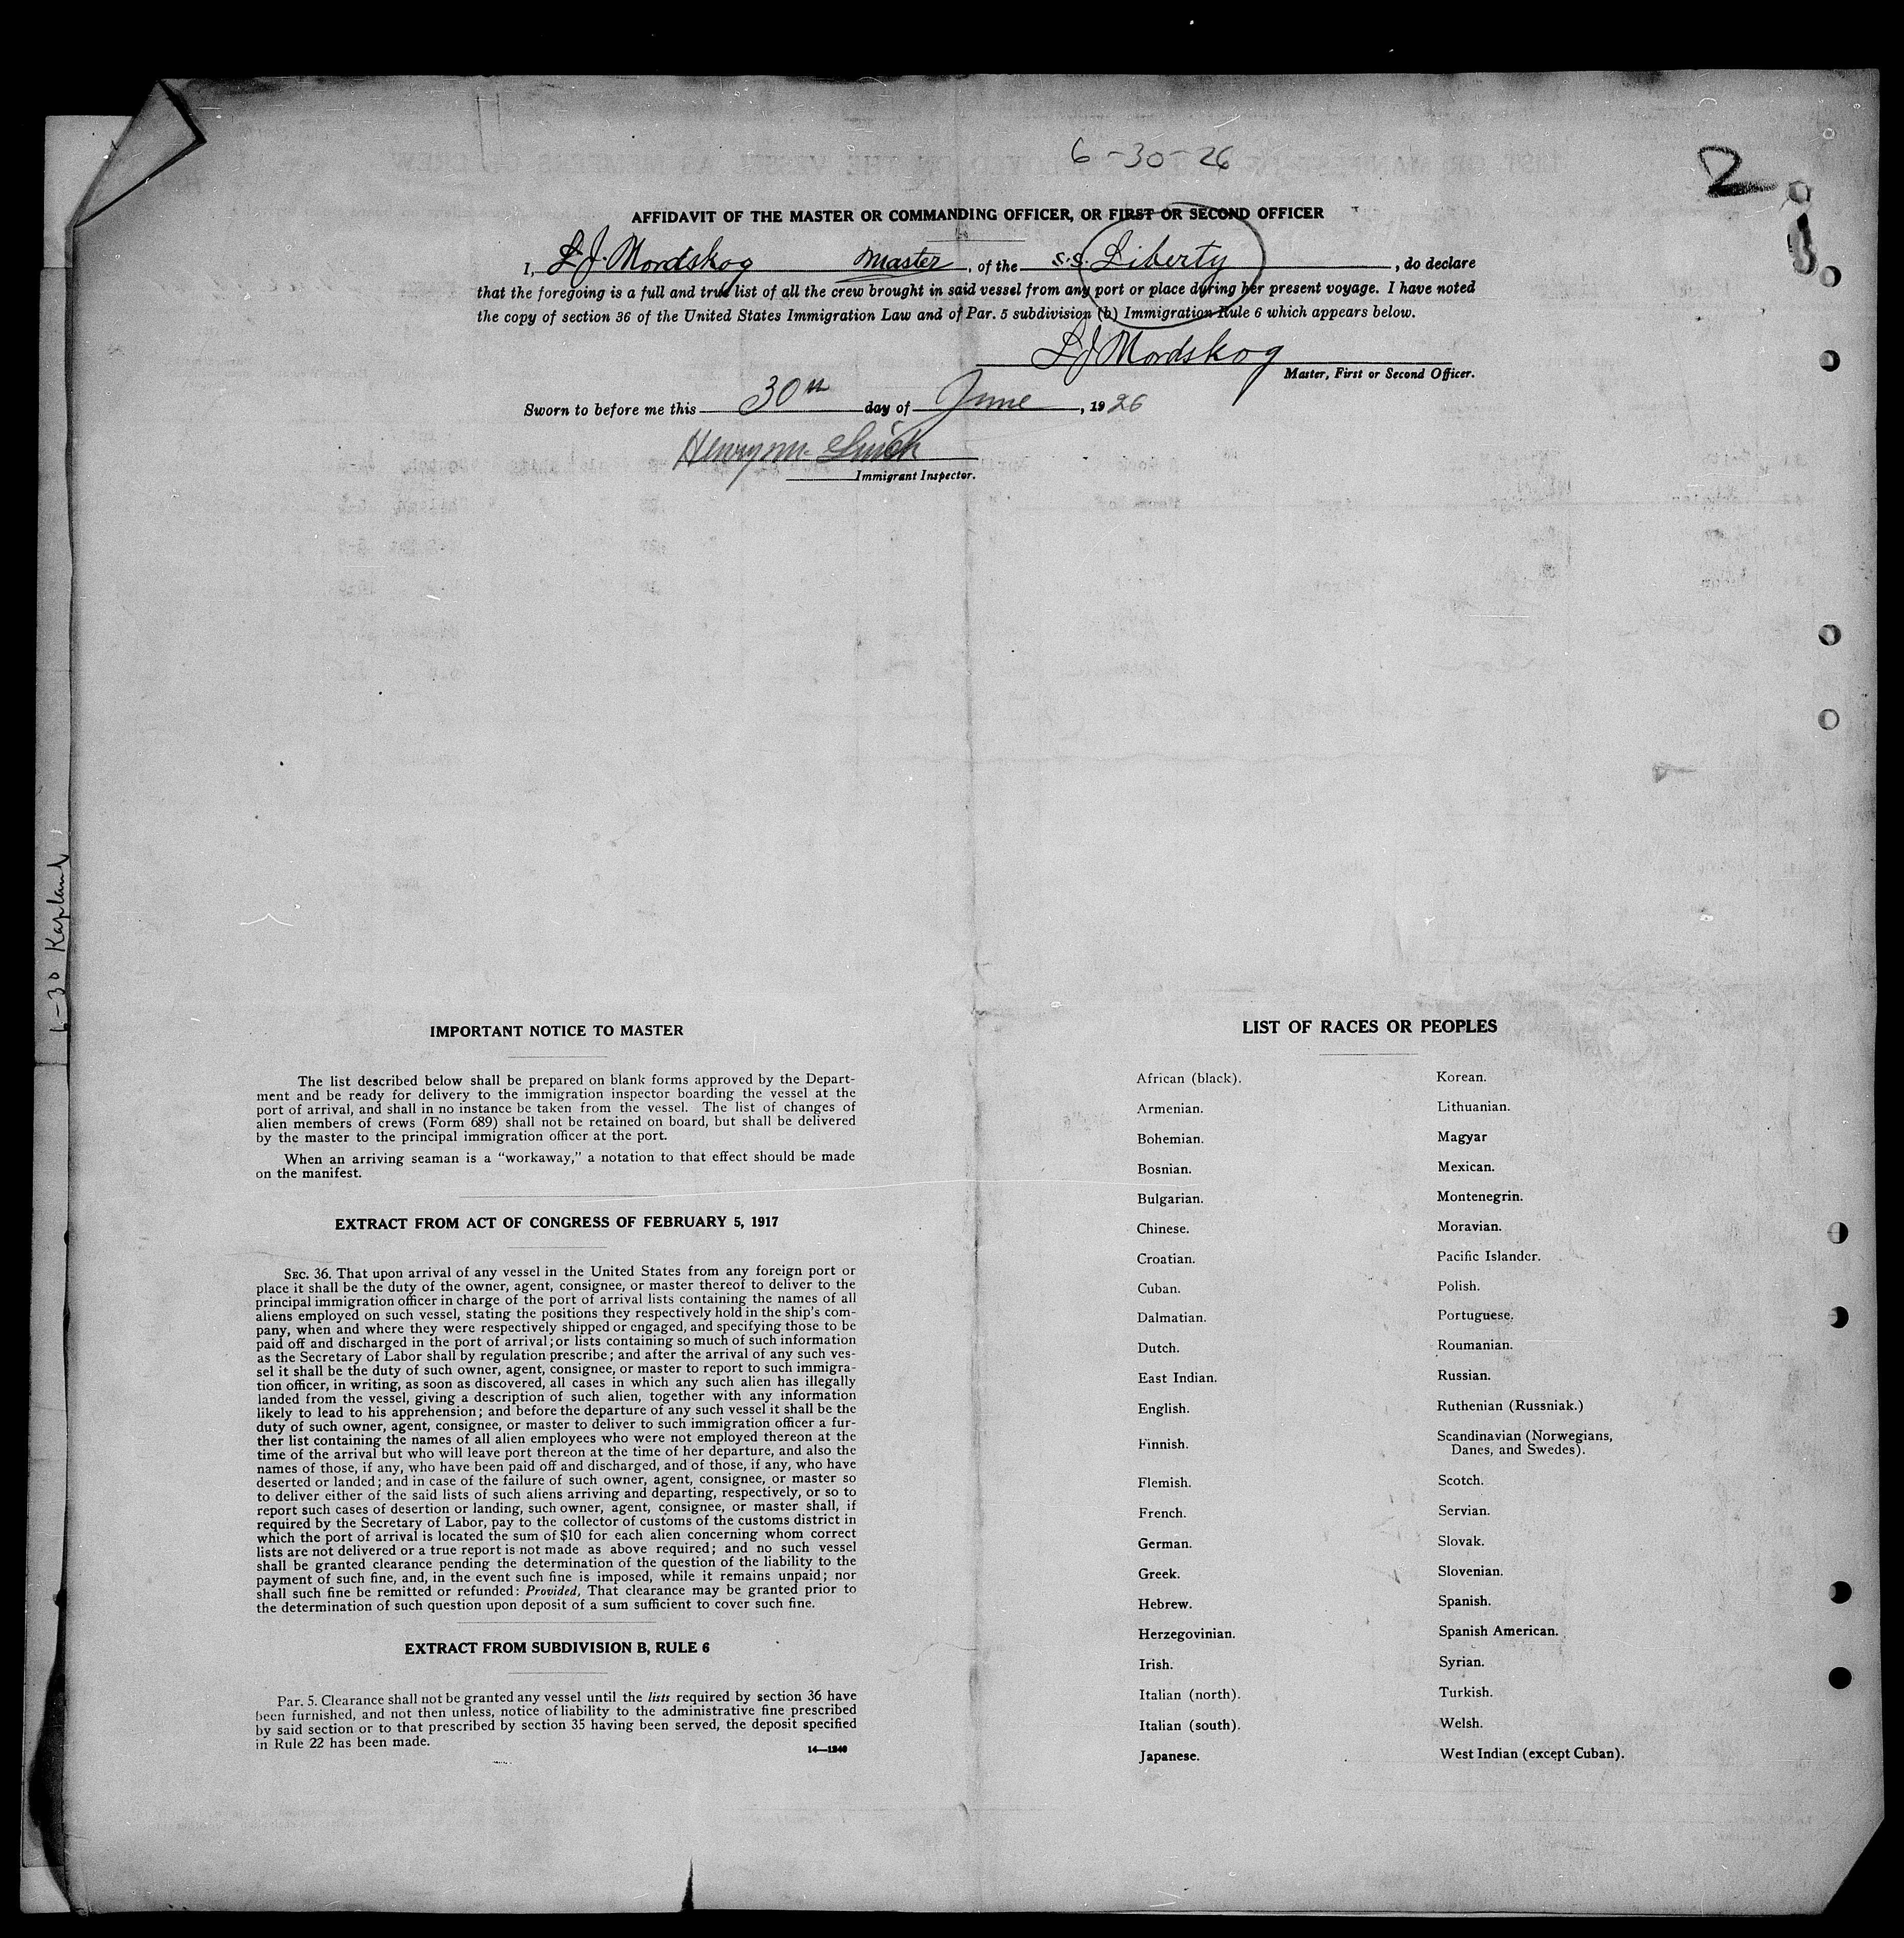 6-30-26
2
AFFIDAVIT OF THE MASTER OR COMMANDING OFFICER, OR FIRST OR SECOND OFFICER
I, L.J. Nordskog master, of the S.S. Liberty, do declare
that the foregoing is a full and true list of all the crew brought in said vessel from any port or place during her present voyage. I have noted
the copy of section 36 of the United States Immigration Law and of Par. 5 subdivision (b) Immigration Rule 6 which appears below.
L J Nordskog
Master, First or Second Officer.
Sworn to before me this 30th day of June, 1926
Henry M.
Immigrant Inspector.
6-30 Kapland
IMPORTANT NOTICE TO MASTER
The list described below shall be prepared on blank forms approved by the Depart-
ment and be ready for delivery to the immigration inspector boarding the vessel at the
port of arrival, and shall in no instance be taken from the vessel. The list of changes of
alien members of crews (Form 689) shall not be retained on board, but shall be delivered
by the master to the principal immigration officer at the port.
When an arriving seaman is a “workaway,” a notation to that effect should be made
on the manifest.
EXTRACT FROM ACT OF CONGRESS OF FEBRUARY 5, 1917
SEC. 36. That upon arrival of any vessel in the United States from any foreign port or
place it shall be the duty of the owner, agent, consignee, or master thereof to deliver to the
principal immigration officer in charge of the port of arrival lists containing the names of all
aliens employed on such vessel, stating the positions they respectively hold in the ship's com-
pany, when and where they were respectively shipped or engaged, and specifying those to be
paid off and discharged in the port of arrival; or lists containing so much of such information
as the Secretary of Labor shall by regulation prescribe; and after the arrival of any such ves-
sel it shall be the duty of such owner, agent, consignee, or master to report to such immigra-
tion officer, in writing, as soon as discovered, all cases in which any such alien has illegally
landed from the vessel, giving a description of such alien, together with any information
likely to lead to his apprehension; and before the departure of any such vessel it shall be the
duty of such owner, agent, consignee, or master to deliver to such immigration officer a fur-
ther list containing the names of all alien employees who were not employed thereon at the
time of the arrival but who will leave port thereon at the time of her departure, and also the
names of those, if any, who have been paid off and discharged, and of those, if any, who have
deserted or landed; and in case of the failure of such owner, agent, consignee, or master so
to deliver either of the said lists of such aliens arriving and departing, respectively, or so to
report such cases of desertion or landing, such owner, agent, consignee, or master shall, if
required by the Secretary of Labor, pay to the collector of customs of the customs district in
which the port of arrival is located the sum of $10 for each alien concerning whom correct
lists are not delivered or a true report is not made as above required; and no such vessel
shall be granted clearance pending the determination of the question of the liability to the
payment of such fine, and, in the event such fine is imposed, while it remains unpaid; nor
shall such fine be remitted or refunded: Provided, That clearance may be granted prior to
the determination of such question upon deposit of a sum sufficient to cover such fine.
EXTRACT FROM SUBDIVISION B, RULE 6
Par. 5. Clearance shall not be granted any vessel until the lists required by section 36 have
been furnished, and not then unless, notice of liability to the administrative fine prescribed
by said section or to that prescribed by section 35 having been served, the deposit specified
in Rule 22 has been made.
14—1240
LIST OF RACES OR PEOPLES
African (black).
Armenian.
Bohemian.
Bosnian.
Bulgarian.
Chinese.
Croatian.
Cuban.
Dalmatian.
Dutch.
East Indian.
English.
Finnish.
Flemish.
French.
German.
Greek.
Hebrew.
Herzegovinian.
Irish.
Italian (north).
Italian (south).
Japanese.
Korean.
Lithuanian.
Magyar
Mexican.
Montenegrin.
Moravian.
Pacific Islander.
Polish.
Portuguese.
Roumanian.
Russian.
Ruthenian (Russniak.)
Scandinavian (Norwegians,
Danes, and Swedes).
Scotch.
Servian.
Slovak.
Slovenian.
Spanish.
Spanish American.
Syrian.
Turkish.
Welsh.
West Indian (except Cuban).